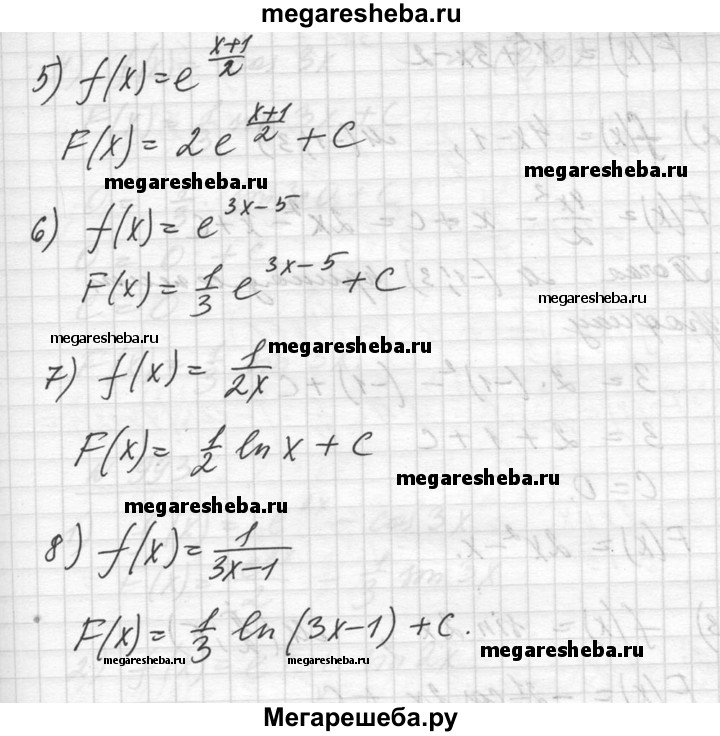 megaresheba.ru
5) f(x) = e^((x+1)/2)
F(x) = 2e^((x+1)/2) + C
megaresheba.ru
megaresheba.ru
6) f(x) = e^(3x-5)
F(x) = 1/3 e^(3x-5) + C
megaresheba.ru
megaresheba.ru
megaresheba.ru
7) f(x) = 1/(2x)
F(x) = 1/2 ln x + C
megaresheba.ru
megaresheba.ru
8) f(x) = 1/(3x-1)
F(x) = 1/3 ln (3x-1) + C.
megaresheba.ru
megaresheba.ru
megaresheba.ru
Мегарешеба.ру